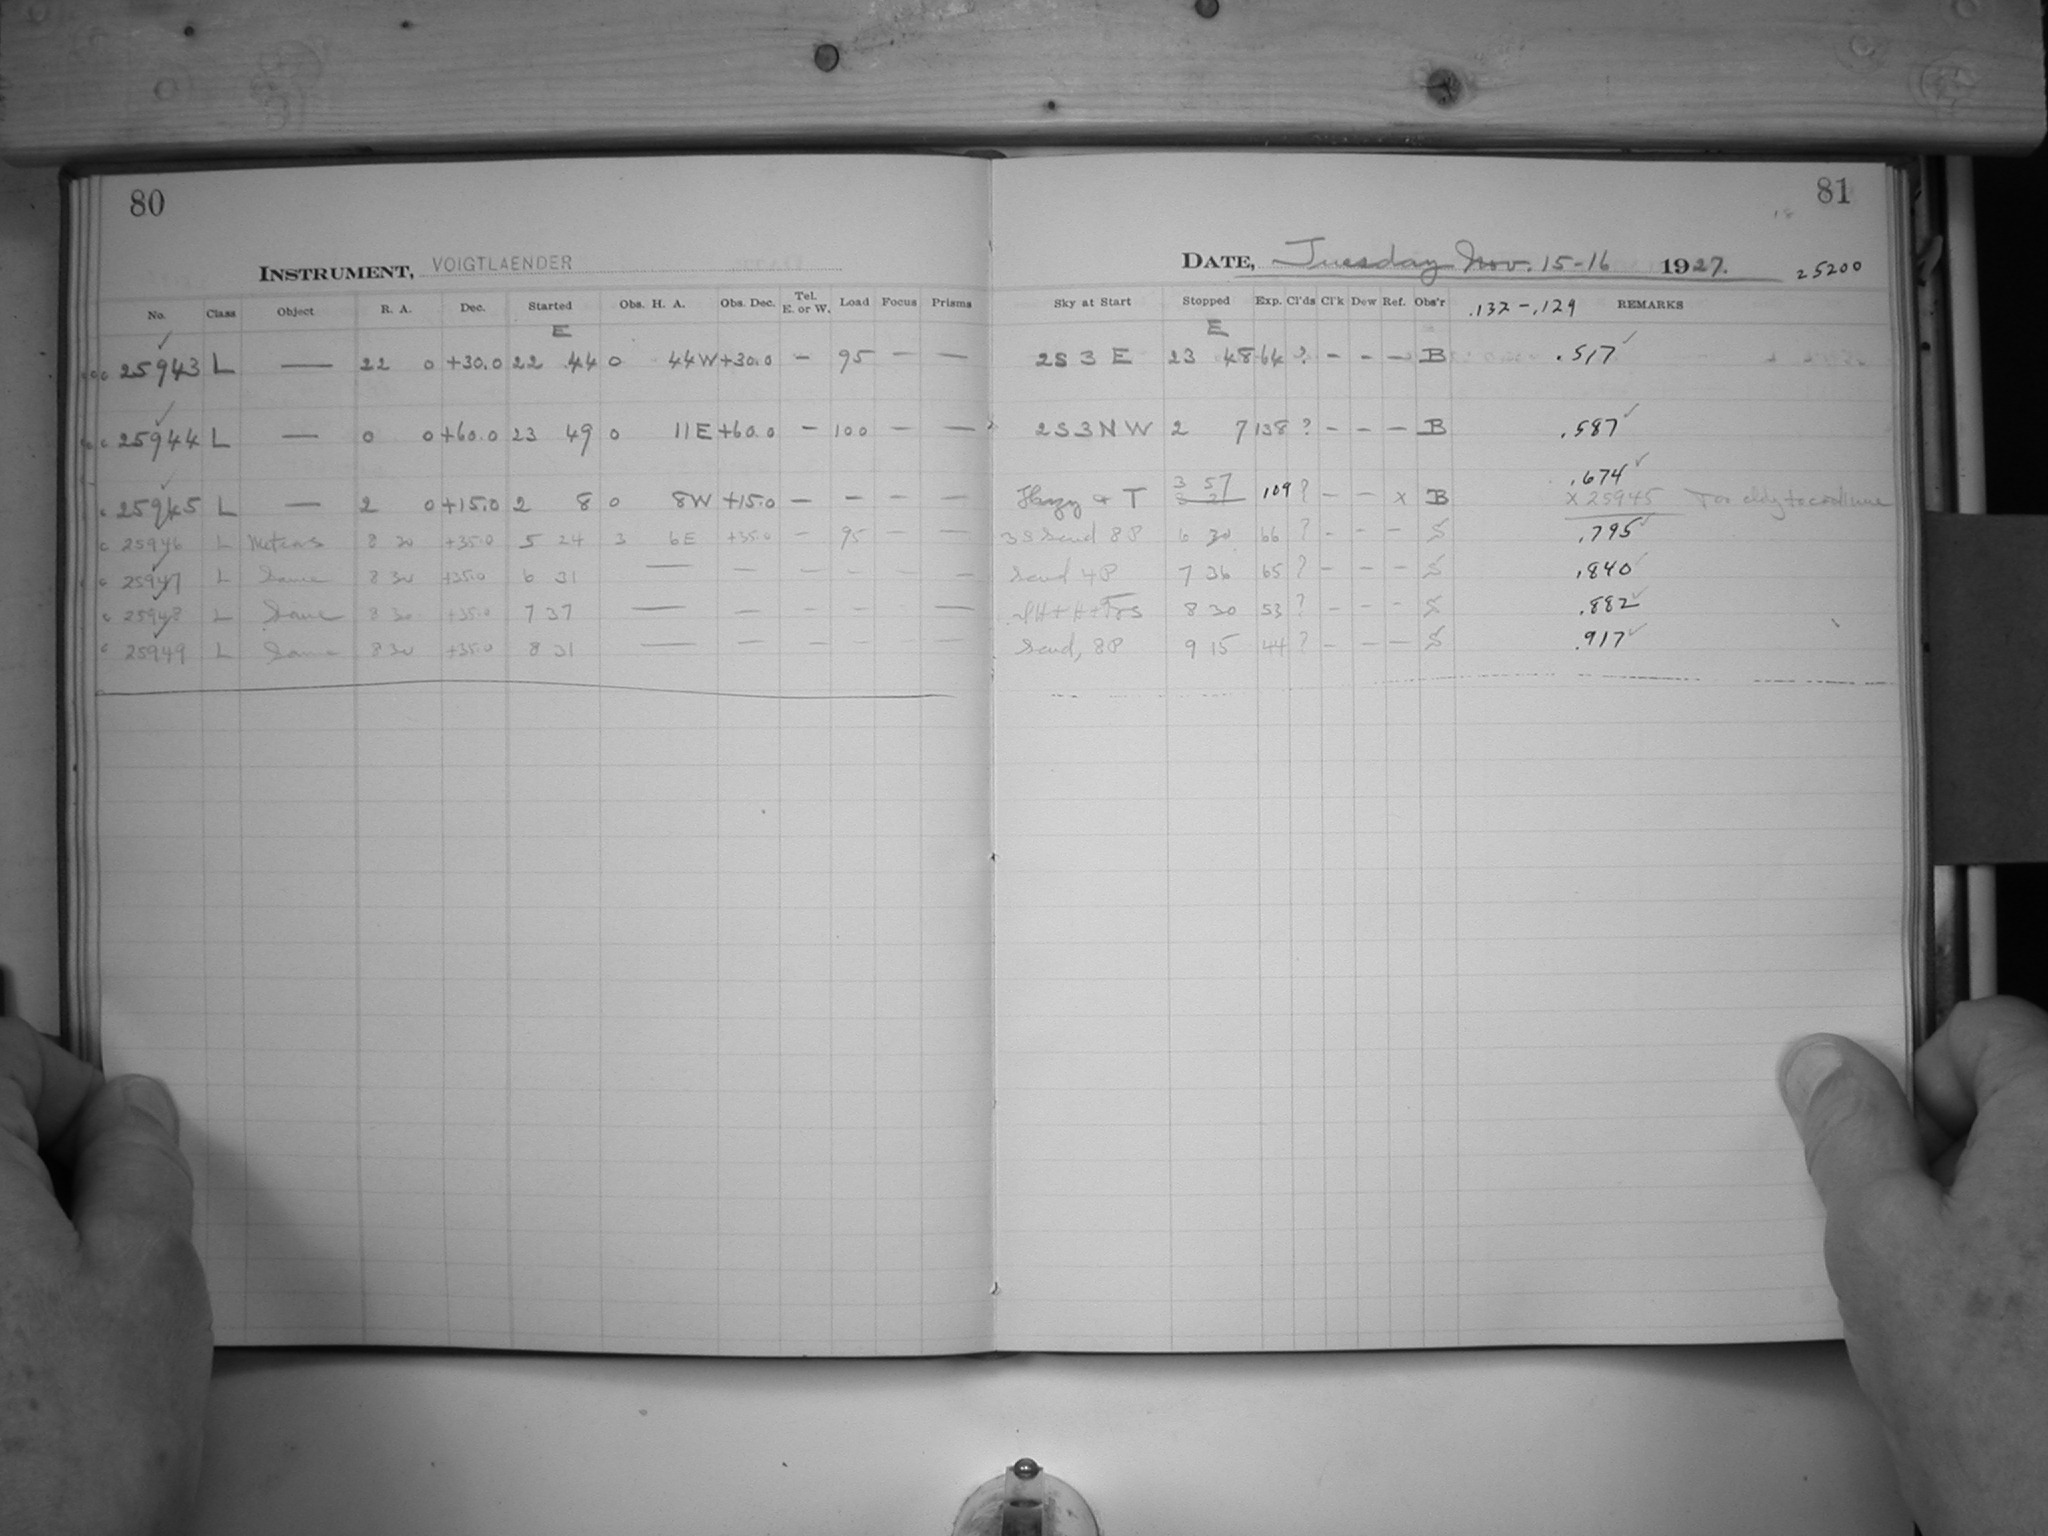 80
INSTRUMENT, VOIGTLAENDER
No. Class Object R. A. Dec. Started Obs. H. A. Obs. Dec. Tel. E. or W. Load Focus Prisms
E
25943 L — 22 0 +30.0 22 44 0 44W +30.0 – 95 – —
25944 L — 0 0 +60.0 23 49 0 11E +60.0 – 100 – —
25945 L — 2 0 +15.0 2 8 0 8W +15.0 — – — —
25946 L Meteors 8 30 +35.0 5 24 3 6E +35.0 – 95 – —
25947 L Same 8 30 +35.0 6 31 — — — — — —
25948 L Same 8 30 +35.0 7 37 — — — — — —
25949 L Same 8 30 +35.0 8 31 — — – — — —
81
DATE, Tuesday Nov. 15-16 1927. 25200
Sky at Start Stopped Exp. Cl'ds Cl'k Dew Ref. Obs'r .132 – .129 REMARKS
E
2S 3 E 23 48 64 ? – – — B .517
2S3NW 2 7 138 ? – – — B .587
.674
Hazy & T 3 57 109 ? – – x B x 25945 Too cldy to continue
3S Scud 8P 6 30 66 ? – – – S .795
Scud 4P 7 36 65 ? – – – S .840
8 30 53 ? – – – S .882
Scud, 8P 9 15 44 ? – – – S .917